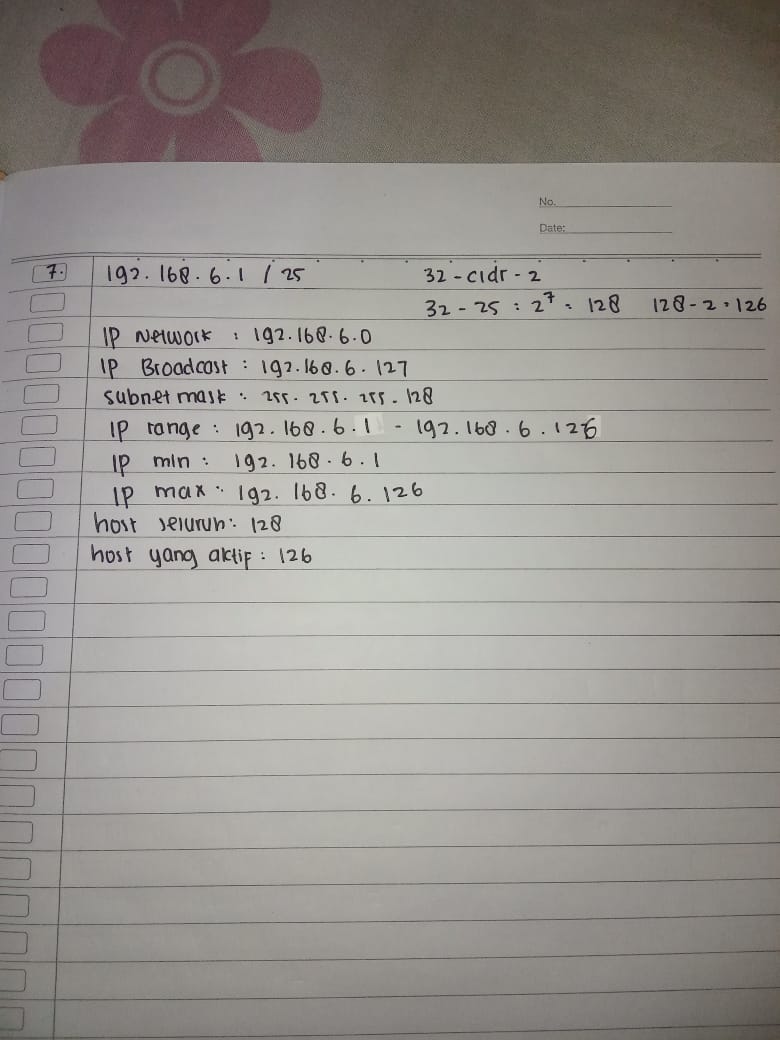 No.
Date:
7. 192.168.6.1 / 25 32 - cidr - 2
32 - 25 : 2⁷ = 128 128 - 2 = 126
IP Network : 192.168.6.0
IP Broadcast : 192.168.6.127
subnet mask : 255.255.255.128
IP range : 192.168.6.1 - 192.168.6.126
IP min : 192.168.6.1
IP max : 192.168.6.126
host seluruh : 128
host yang aktif : 126